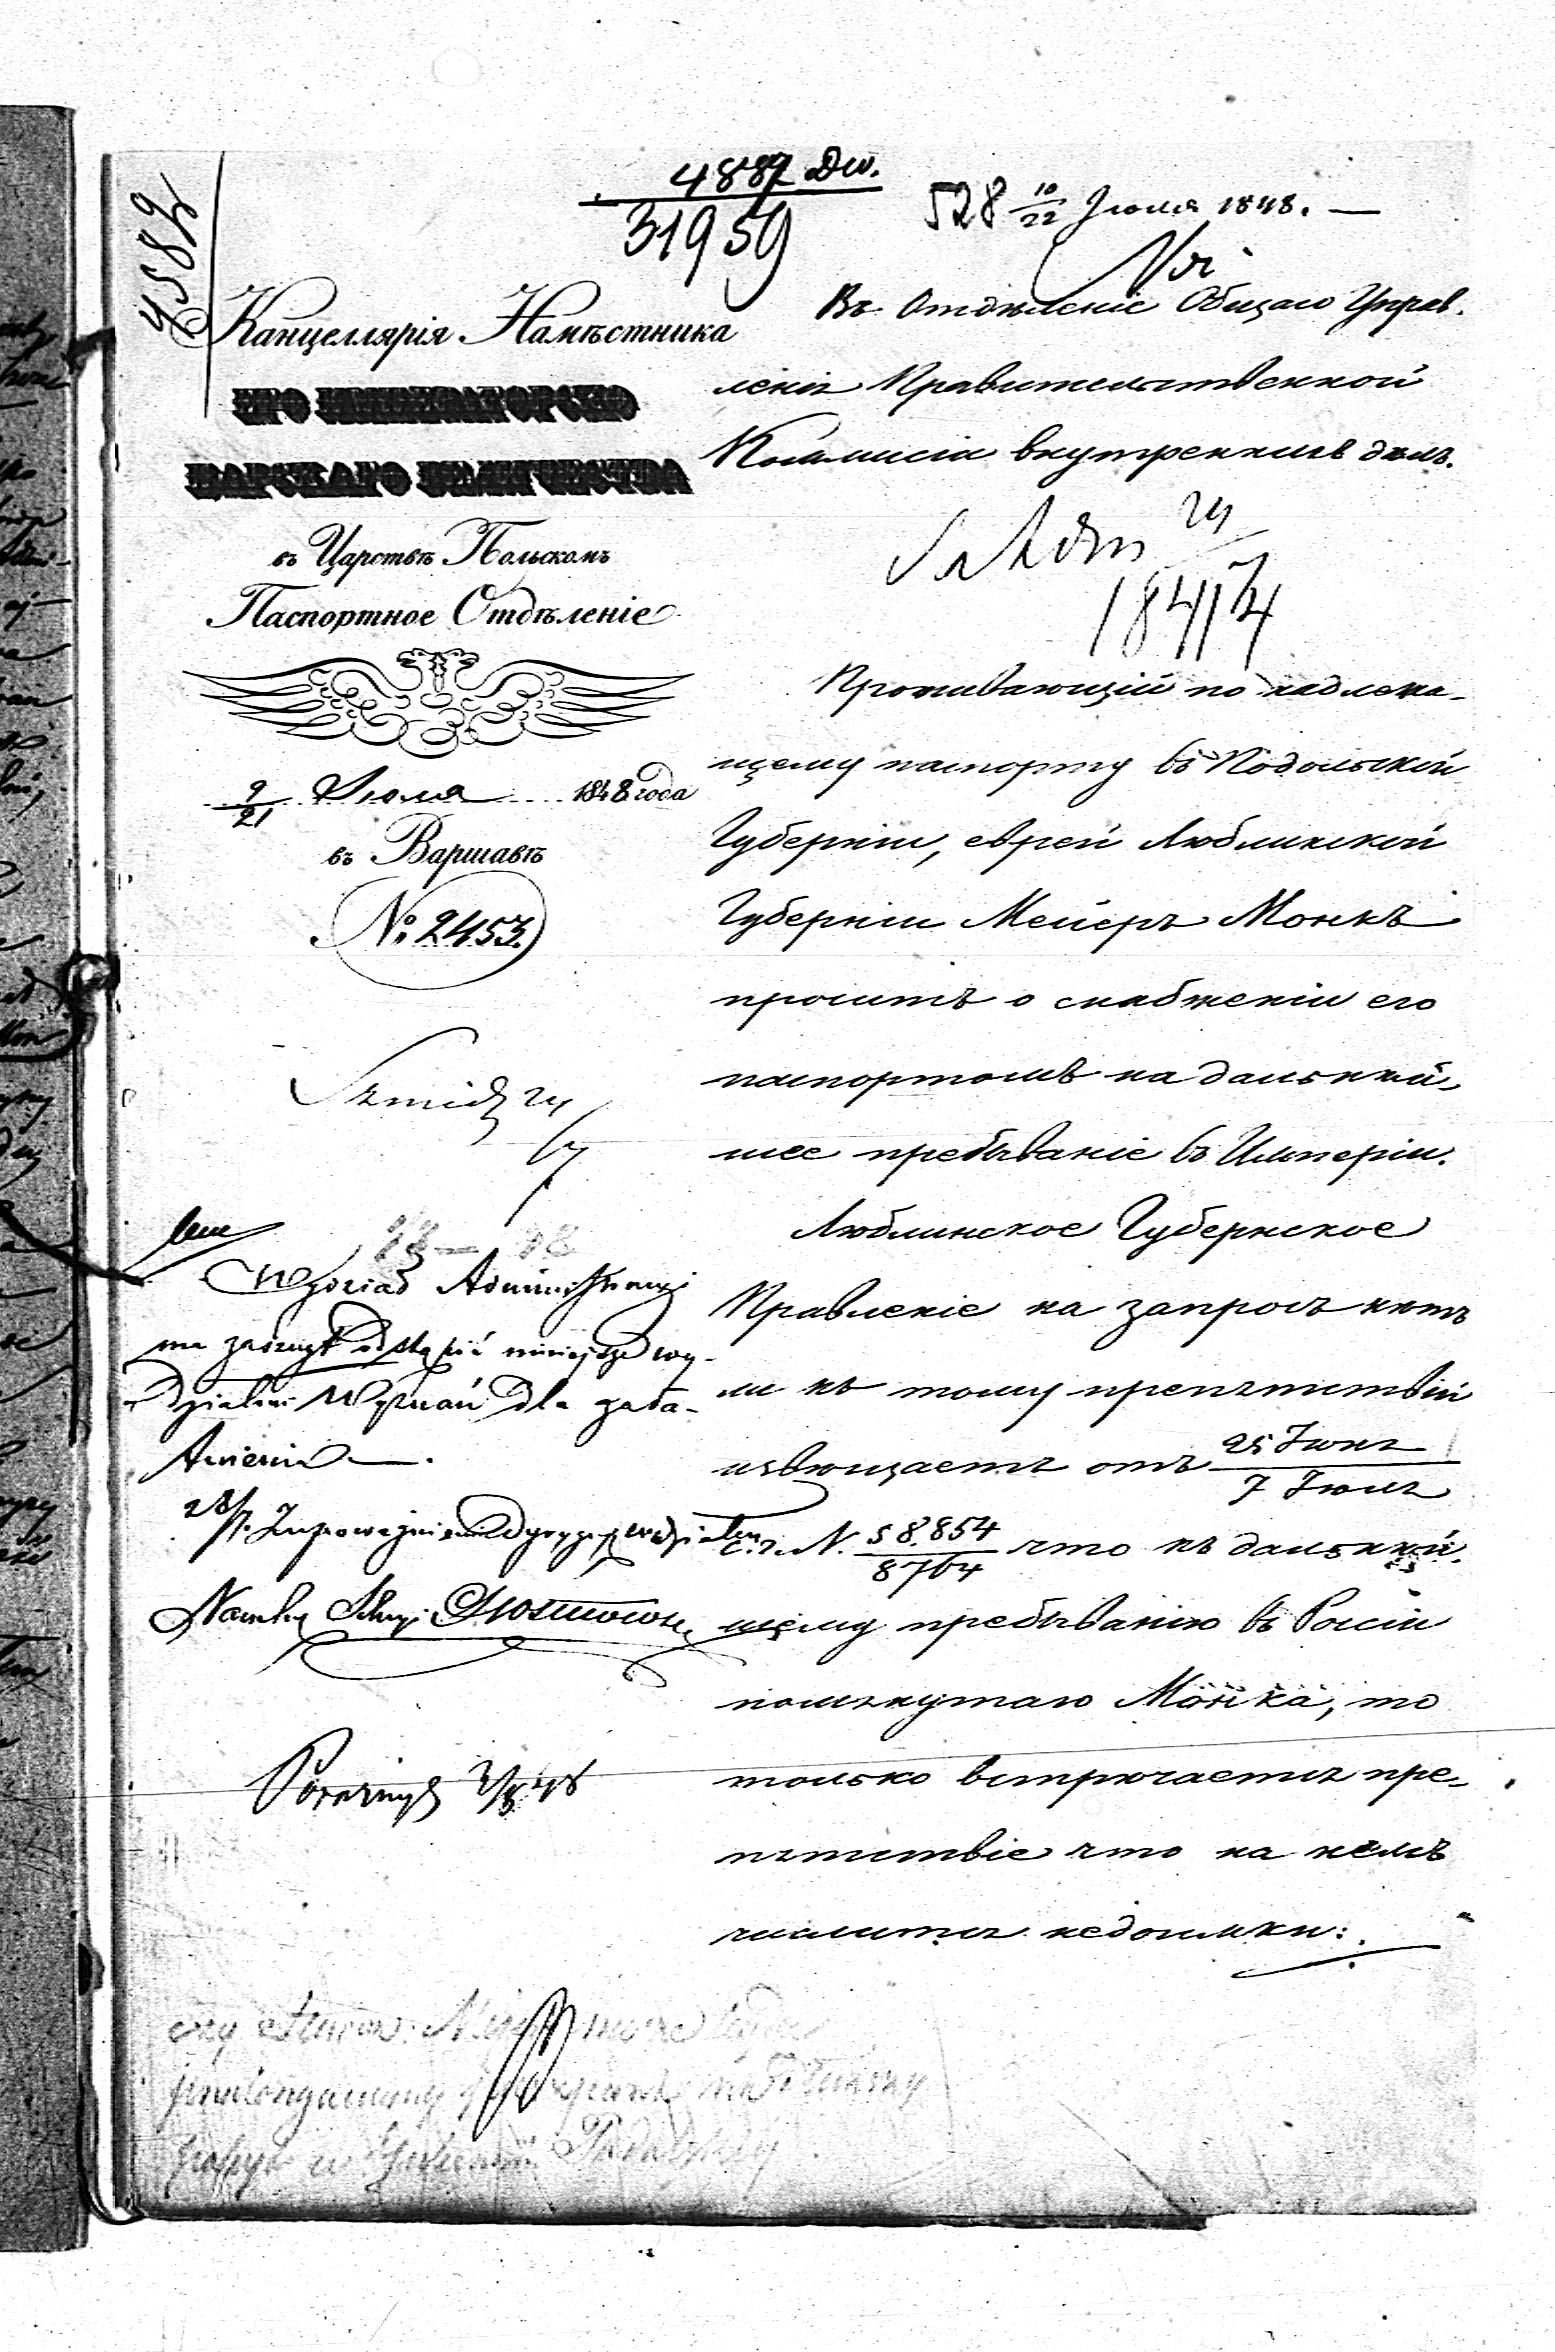 4887 Dw.
31959
528 10/22 Іюля 1848. —
4587
Канцеллярія Намѣстника
ЕГО ИМПЕРАТОРСКО
ЦАРСКАГО ВЕЛИЧЕСТВА
въ Царствѣ Польскомъ
Паспортное Отдѣленіе
9/21 Іюля 1848 года
въ Варшавѣ
№ 2453.
Въ Отдѣленіе Общаго Управ-
ленія Правительственной
Коммисіи внутреннихъ дѣлъ.
24
18414
Проживающій по надлежа-
щему паспорту въ Подольской
Губерніи, еврей Люблинской
Губерніи Мейеръ Монкъ
проситъ о снабженіи его
паспортомъ на дальнѣй-
шее пребываніе въ Имперіи.
Люблинское Губернское
Правленіе на запросъ нѣтъ
ли къ тому препятствій
извѣщаетъ отъ 25 Іюня / 7 Іюля
с. г. N. 58.854 / 8764 что къ дальнѣй-
шему пребыванію въ Россіи
помянутаго Монка, то
только встрѣчается пре-
пятствіе что на нёмъ
числится недоимки:
Wydział Administracyi
ma zaszczyt odstąpić niniejsze wy-
działowi Wyznań dla zała-
twienia —.
28/7.